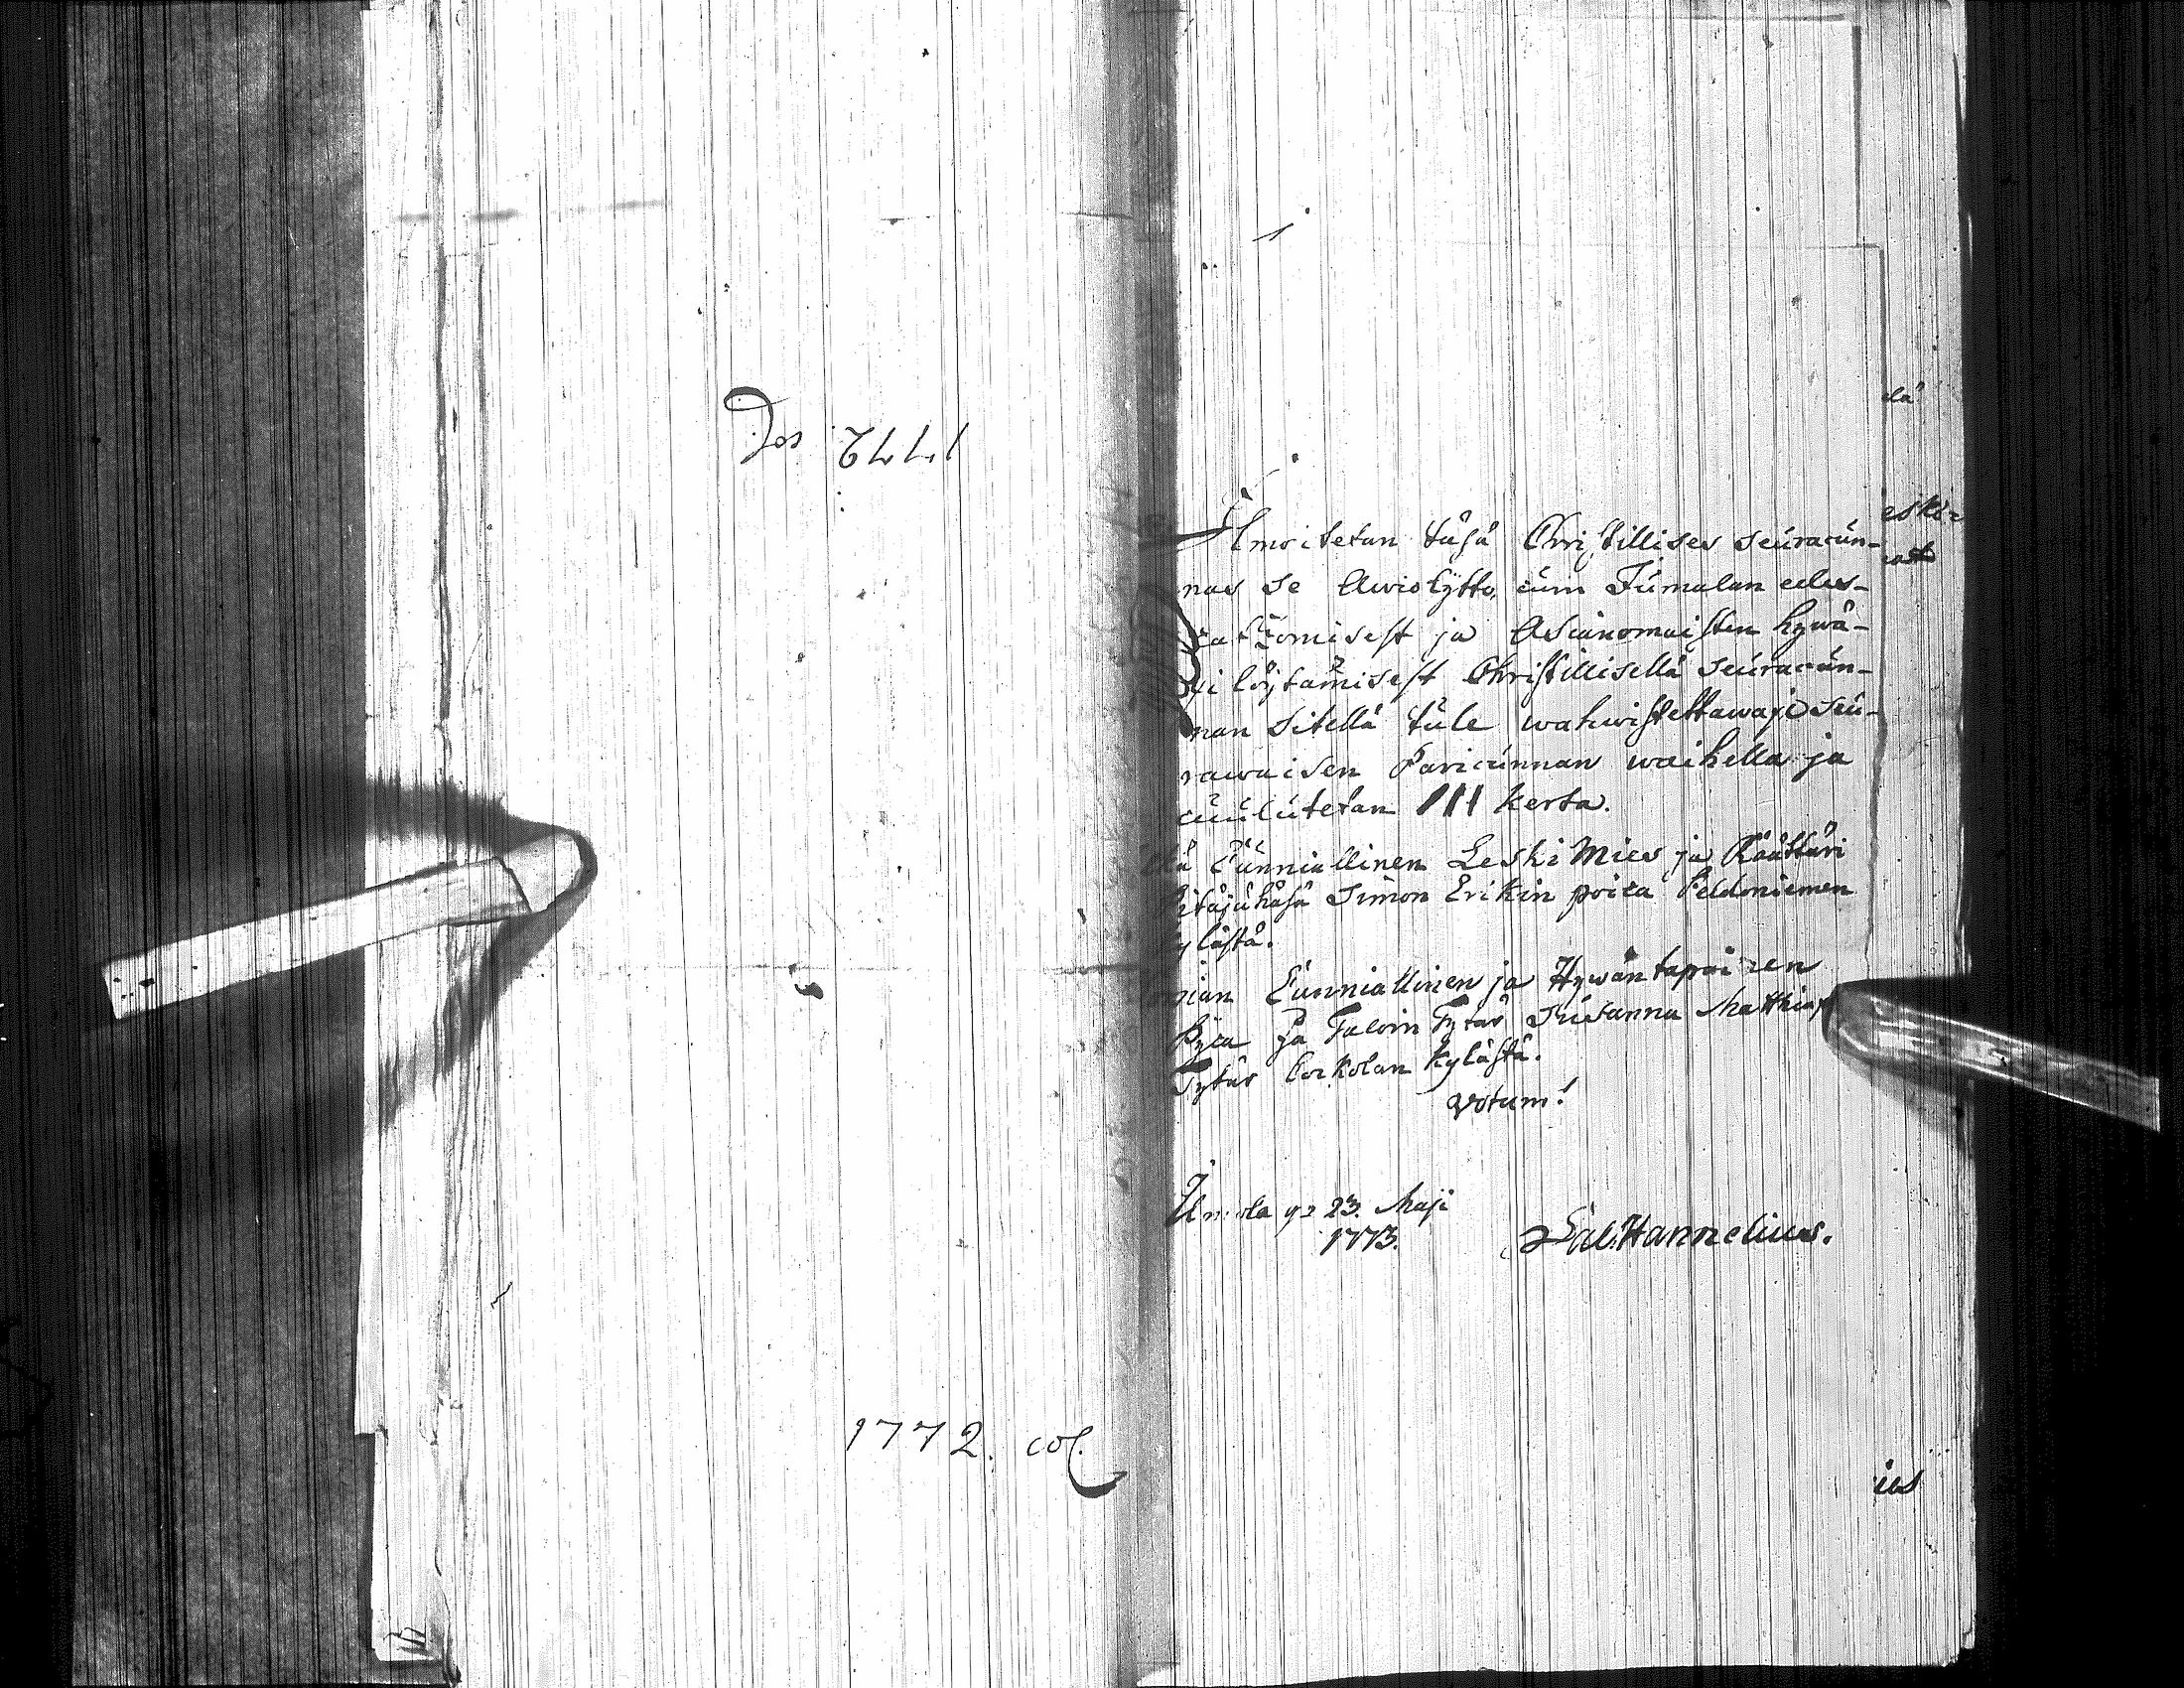 1772 col
1772. col.
Ilmoitetan täsä Christillises seuracun-
nas se Awiolijtto, cuin Jumalan edes-
catzomisest ja Asianomaisten hywä-
xi löytämisest Christillisellä seuracun-
nan sitellä tule wahwistettawaxi seu-
rawaisen Paricunnan waihella ja
cuulutetan III kerta.
Cunniallinen Leski Mies ja Räätäri
Pitäjähäsä Simon Erikin poica Peldoniemen
kylästä.
Cunniallinen ja Hywäntapainen
Pijca ja Taloin Tytär Susanna Matthiax
Tytär Cockolan Kylästä.
Votum!
Urniola ye 23. Maji
1773.
Sal. Hannelius.
lä
eski-
ius